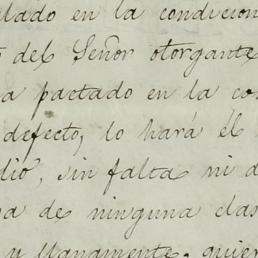 llado en la condicion
del Señor otorgante
a pactado en la co
defecto, lo hará él
dio, sin falta ni d
a de ninguna clas
y llanamente, quier